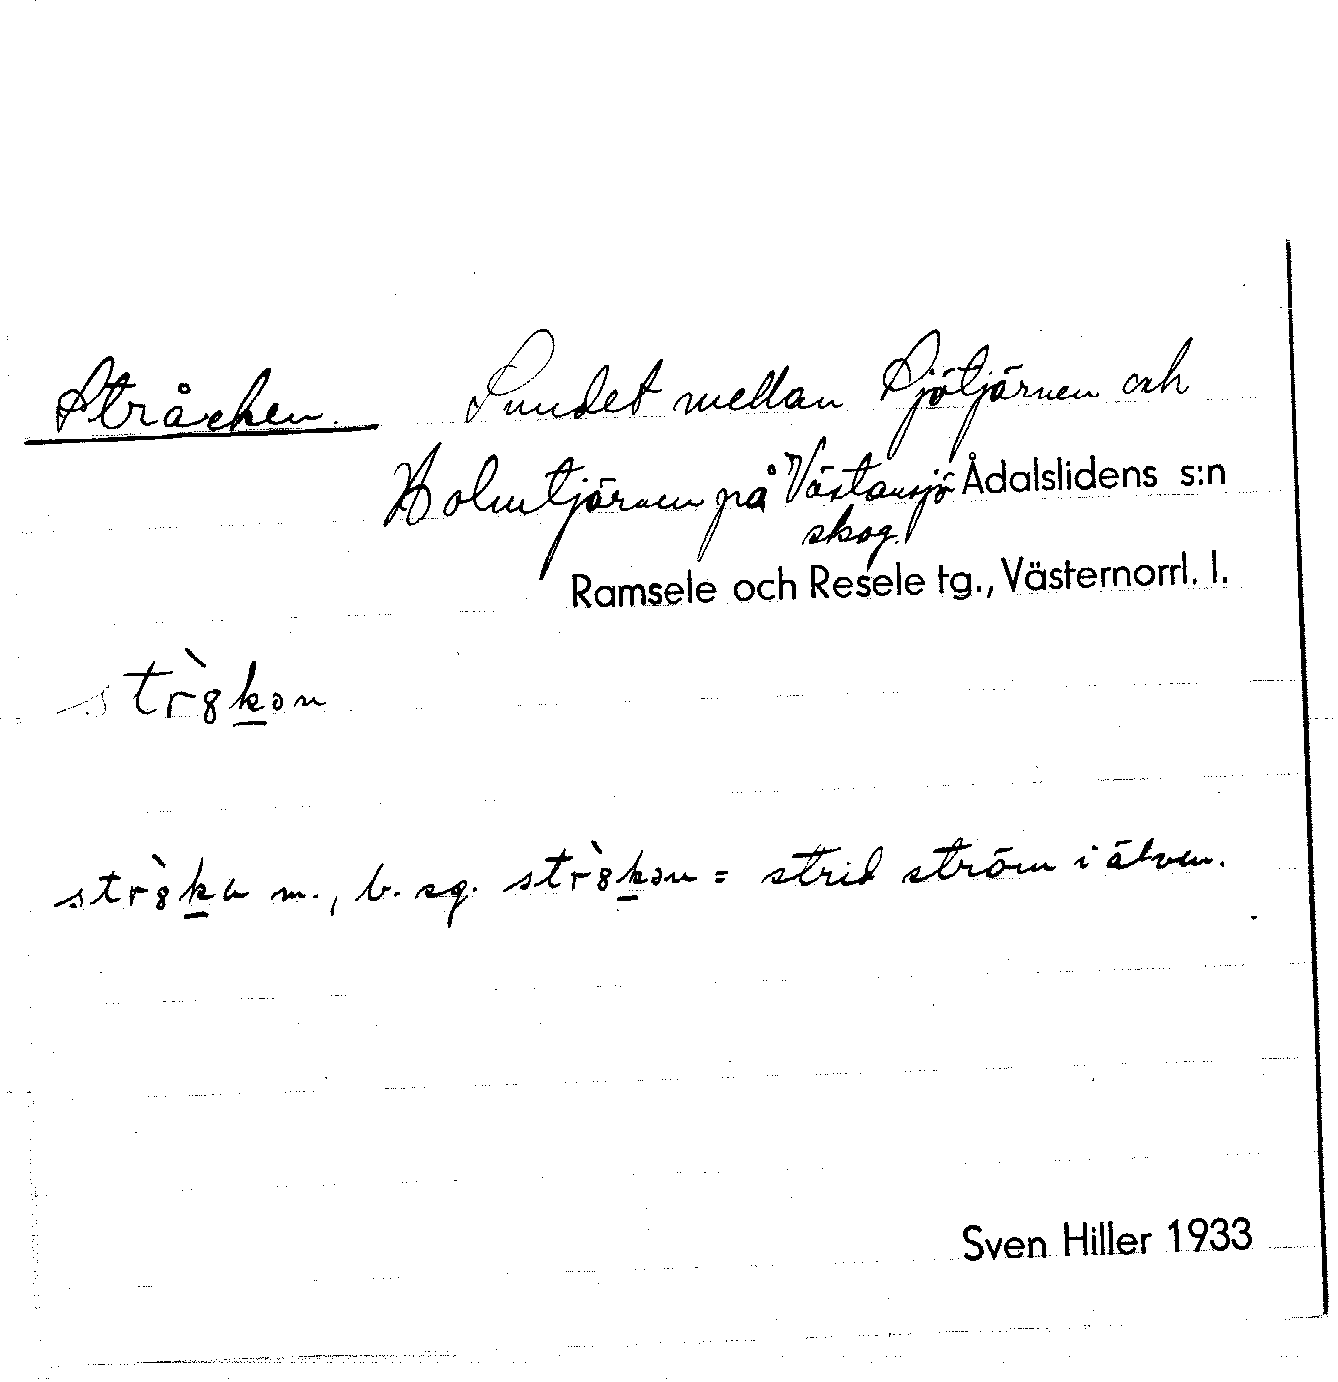 Stråcken. Sundet mellan Sjötjärnen och
Holmtjärnen på Västansjö Ådalslidens s:n
skog.
Ramsele och Resele tg., Västernorrl. l.
str̀8k̲ən
str̀8k̲a m., b. sg. str̀8k̲ən = strid ström i älven.
Sven Hiller 1933